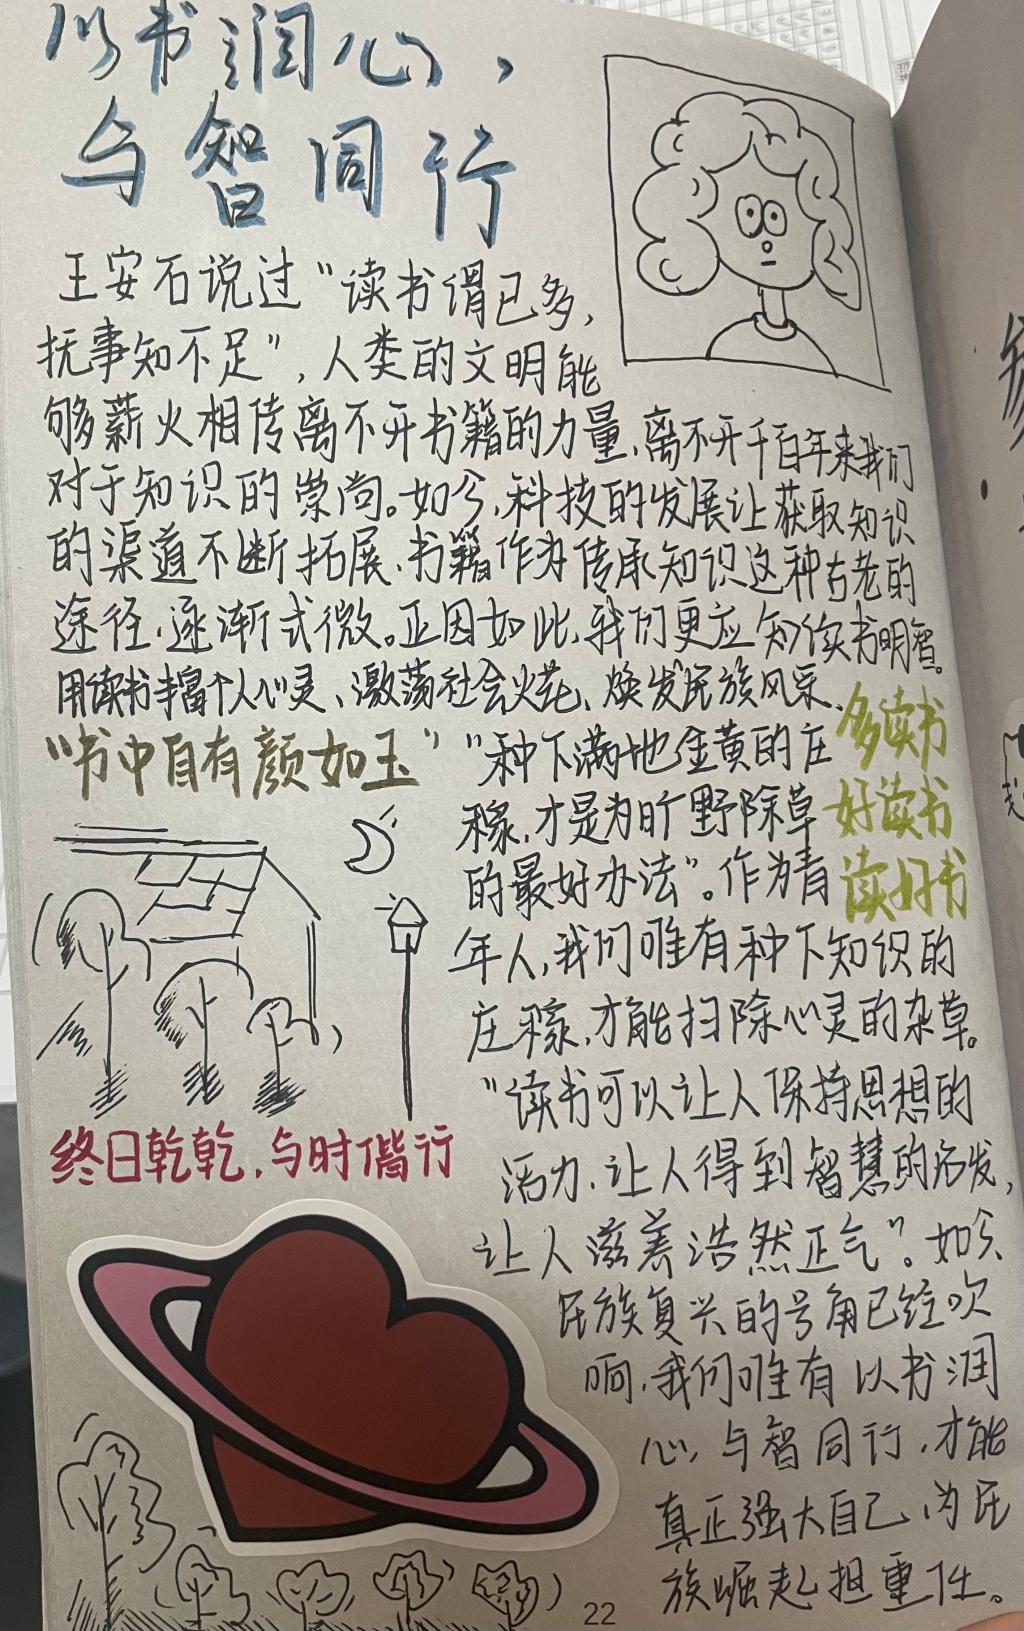 以书润心，
与智同行
王安石说过"读书谓已多，
抚事知不足"，人类的文明能
够薪火相传离不开书籍的力量，离不开千百年来我们
对于知识的崇尚。如今，科技的发展让获取知识
的渠道不断拓展，书籍作为传承知识这种古老的
途径，逐渐式微。正因如此，我们更应知读书明智。
用读书丰富个人心灵、激荡社会火花、焕发民族风采、
多读书
好读书
读好书
"书中自有颜如玉"
"种下满地金黄的庄
稼，才是为旷野除草
的最好办法"。作为青
年人，我们唯有种下知识的
庄稼，才能扫除心灵的杂草。
"读书可以让人保持思想的
活力，让人得到智慧的启发，
让人滋养浩然正气"。如今，
民族复兴的号角已经吹
响，我们唯有以书润
心，与智同行，才能
真正强大自己，为民
族崛起担重任。
终日乾乾，与时偕行
22